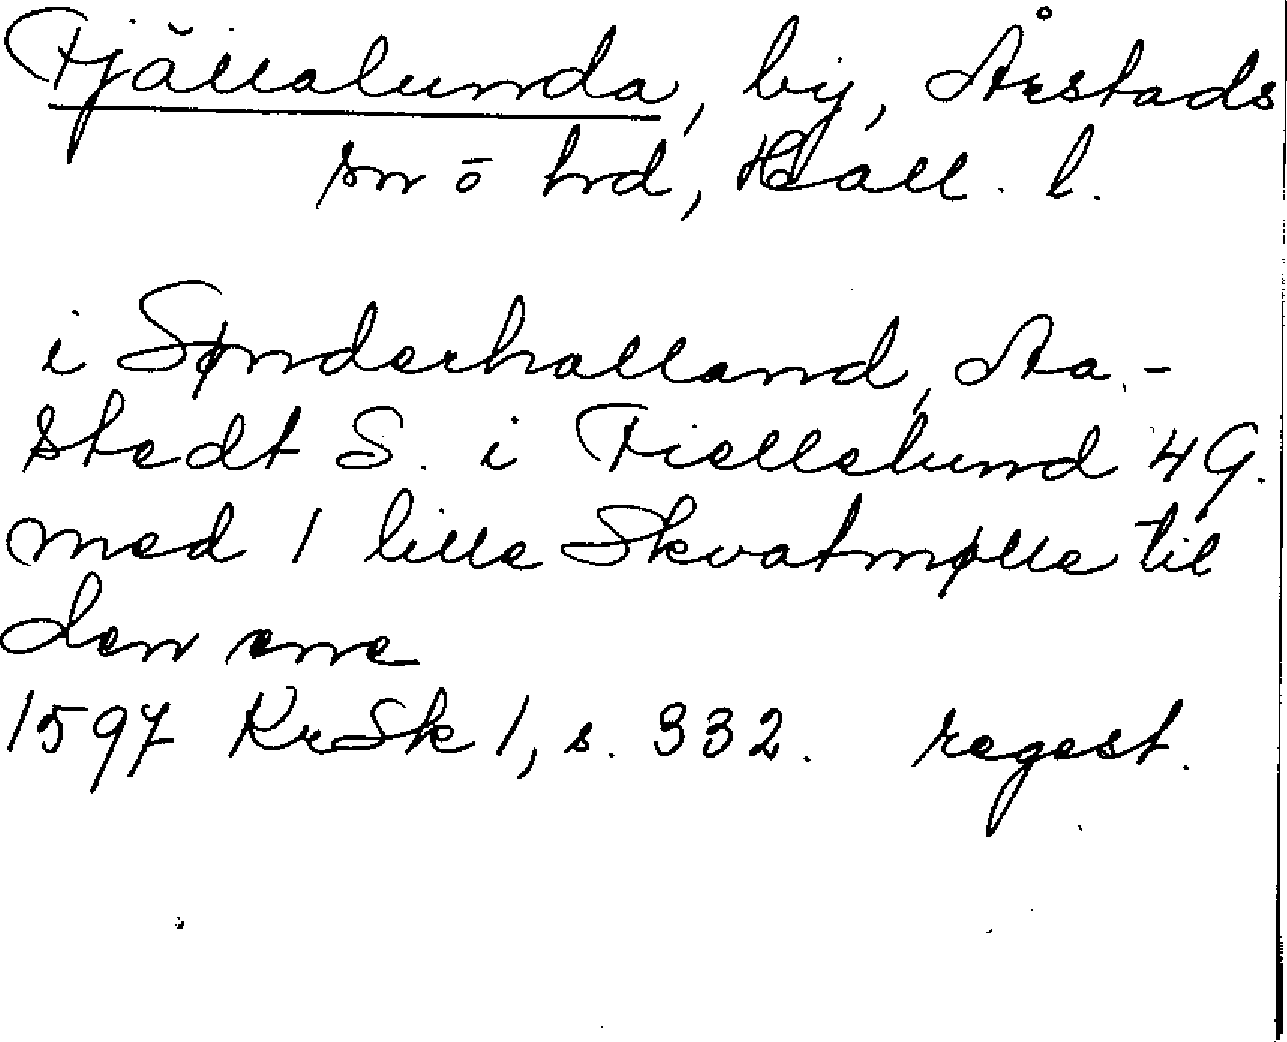 Fjällalunda, by, Årstads
sn o hd, Hall. l.
i Sønderhalland, Aa-
stedt S. i Fiellelund 4 G.
med 1 lille Skvatmølle til
den ene
1597 KrSk 1, s. 332. regest.